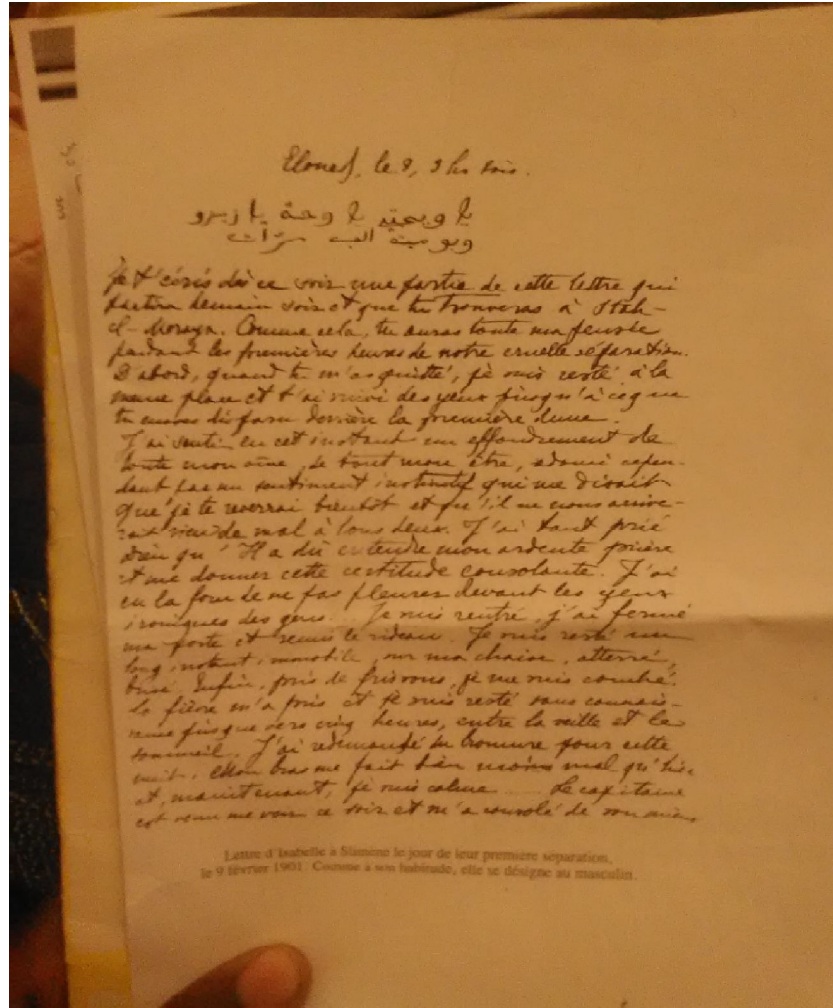 Eloued, le 9, 9 hs soir.
يا
Je t'écris dès ce soir une partie de cette lettre qui
partira demain soir et que tu trouveras à Stah-
el-Moraya. Comme cela, tu auras toute ma pensée
pendant les premières heures de notre cruelle séparation.
D'abord, quand tu m'as quitté, je suis resté à la
même place et t'ai suivi des yeux jusqu'à ce que
tu eusses disparu derrière la première dune.
J'ai senti en cet instant un effondrement de
toute mon âme, de tout mon être, adouci cepen-
dant par un sentiment instinctif qui me disait
que je te reverrai bientôt et qu'il ne nous arrive-
rait rien de mal à tous deux. J'ai tant prié
Dieu qu'Il a dû entendre mon ardente prière
et me donner cette certitude consolante. J'ai
eu la force de ne pas pleurer devant les yeux
ironiques des gens. Je suis rentré, j'ai fermé
ma porte et remis le rideau. Je suis resté un
long instant, immobile, sur ma chaise, atterré,
brisé. Enfin, pris de frissons, je me suis couché.
La fièvre m'a pris et je suis resté sans connais-
sance jusque vers cinq heures, entre la veille et le
sommeil. J'ai redemandé du bromure pour cette
nuit. Mon bras me fait bien moins mal qu'hier
et, maintenant, je suis calme.... Le capitaine
est venu me voir ce soir et m'a consolé de son mieux
Lettre d'Isabelle à Slimène le jour de leur première séparation,
le 9 février 1901. Comme à son habitude, elle se désigne au masculin.